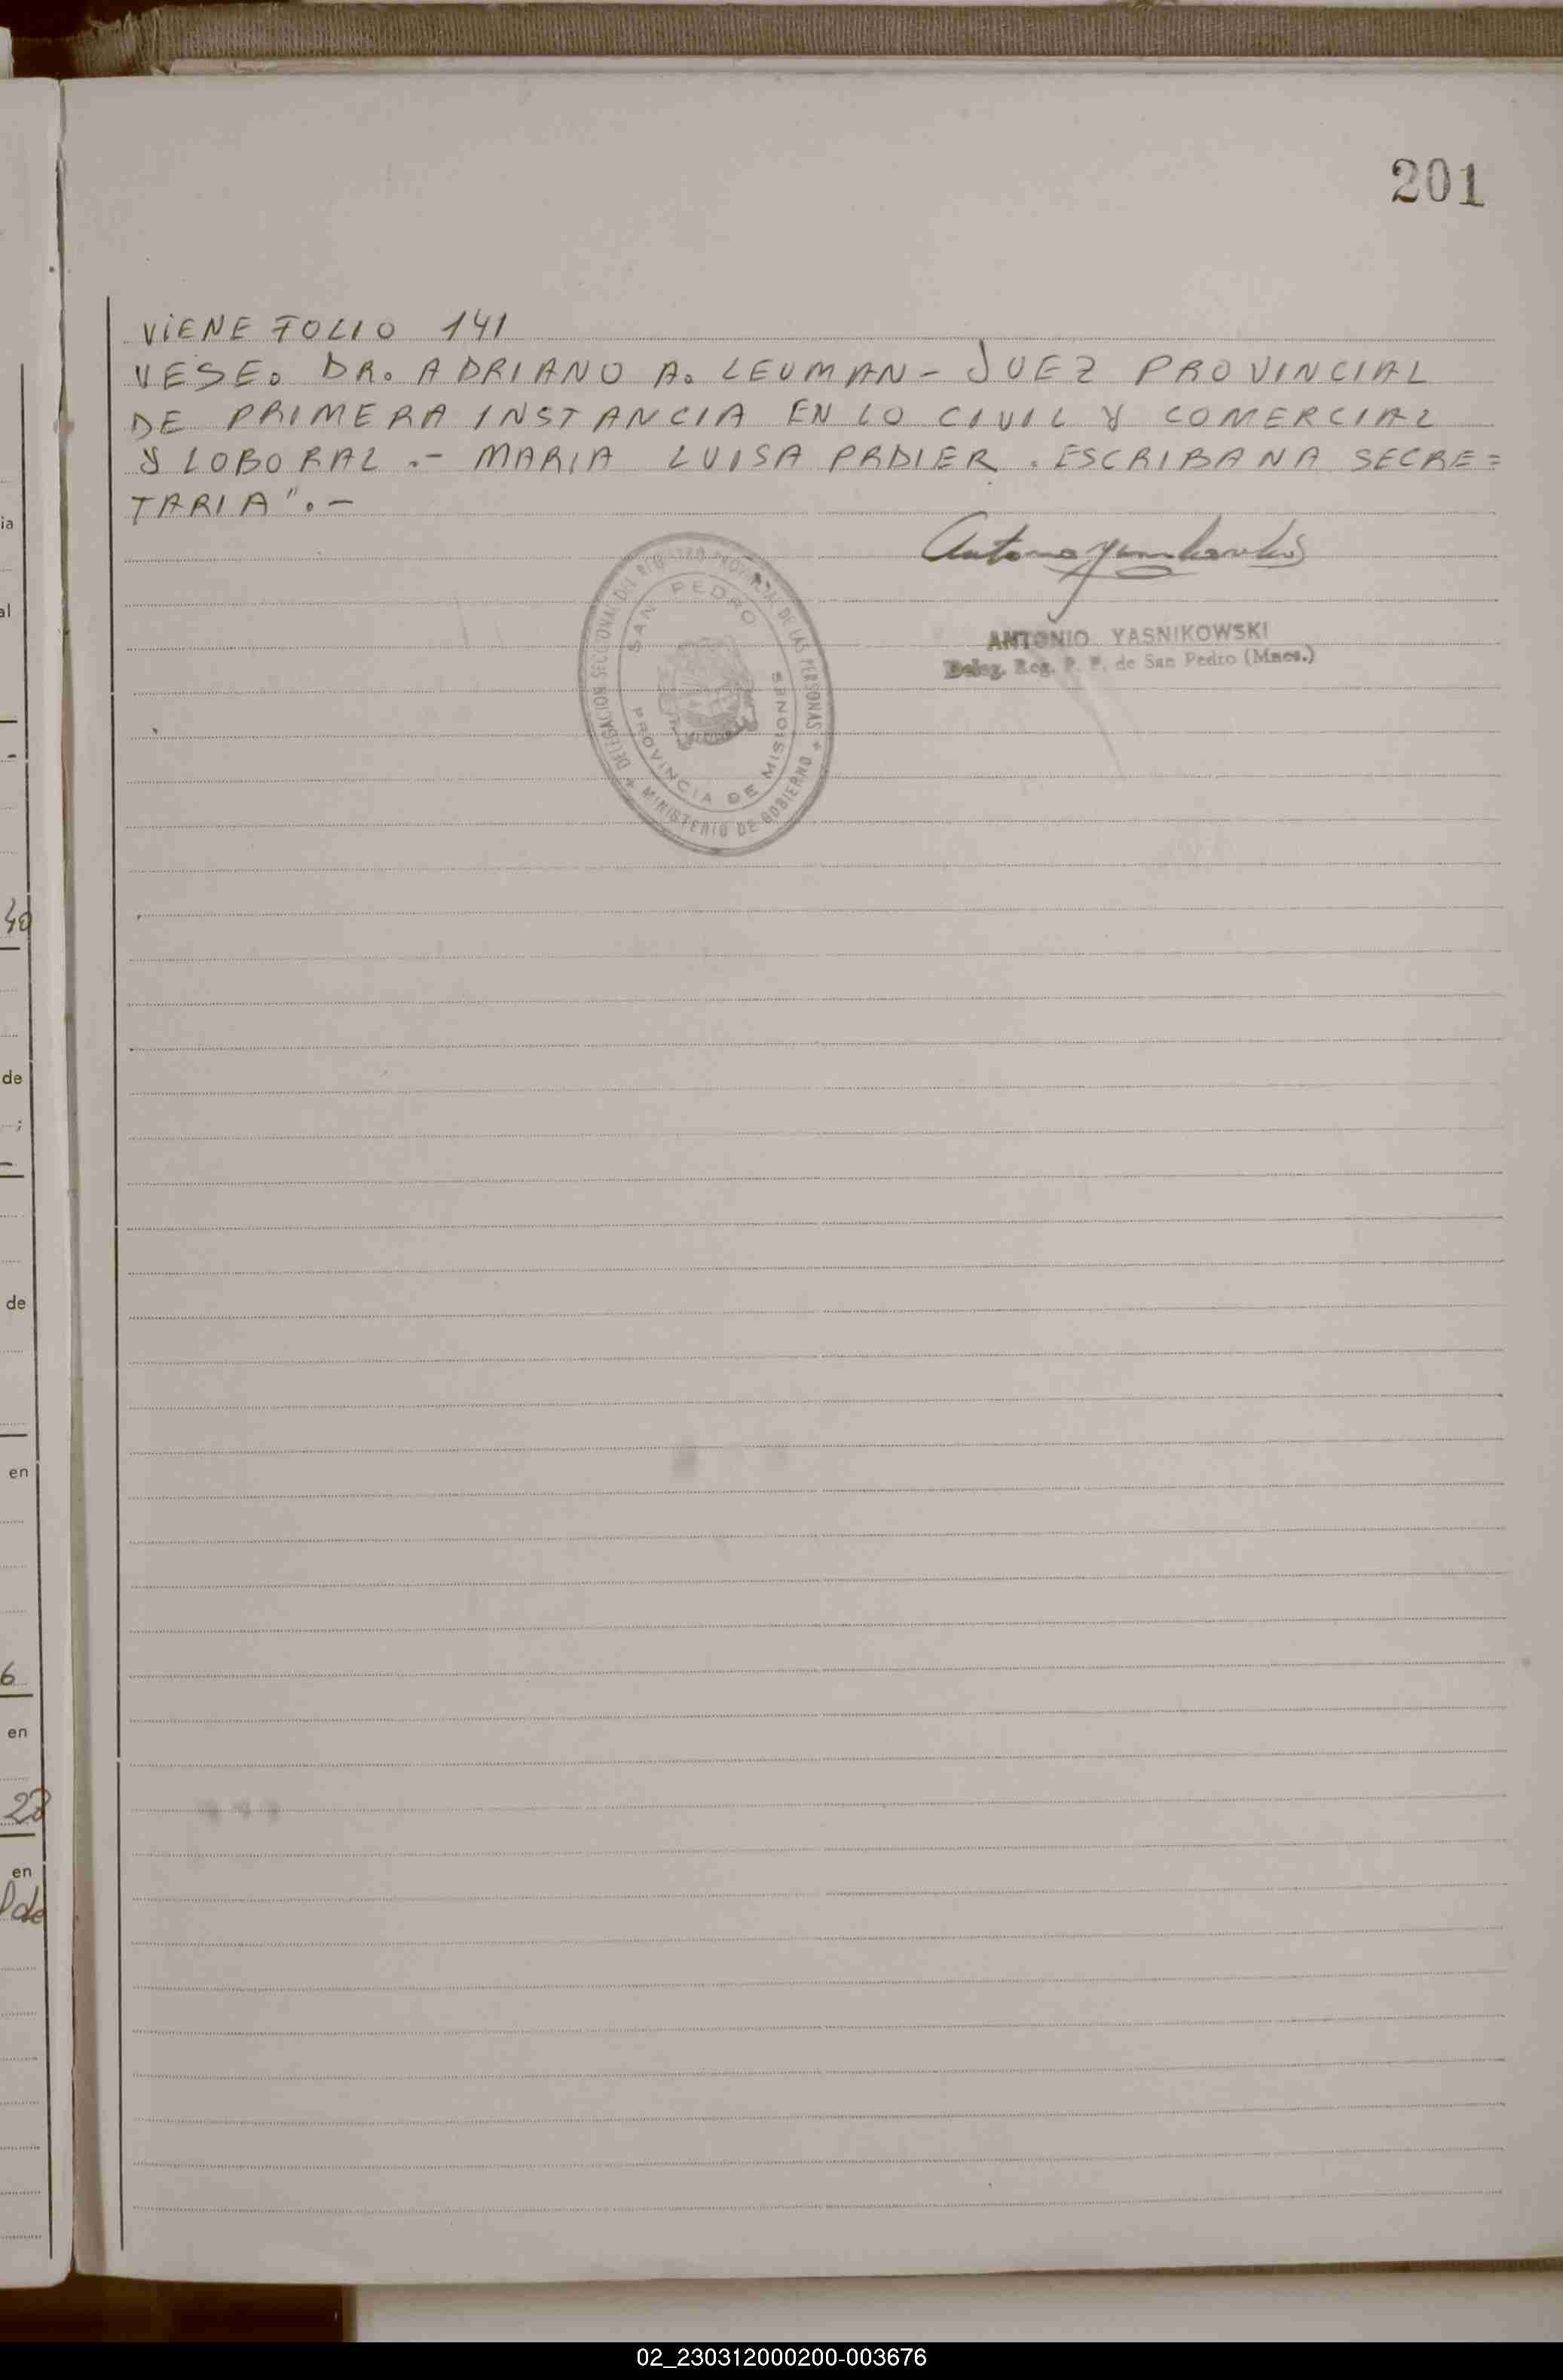 201
VIENE FOLIO 141
VESE. DR. ADRIANO A. LEUMAN - JUEZ PROVINCIAL
DE PRIMERA INSTANCIA EN LO CIVIL Y COMERCIAL
Y LOBORAL .- MARIA LUISA PRDIER . ESCRIBANA SECRE=
TARIA".-
Antonio Yasnikowski
ANTONIO YASNIKOWSKI
Deleg. Reg. P. P. de San Pedro (Mnes.)
DELEGACION SECCIONAL DEL REGISTRO PROVINCIAL DE LAS PERSONAS
MINISTERIO DE GOBIERNO
SAN PEDRO
PROVINCIA DE MISIONES
ia
al
40
de
;
de
en
6
en
28
en
de
02_230312000200-003676